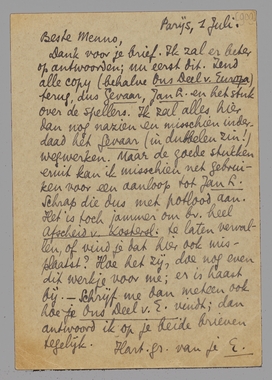 Parijs, 1 Juli.
Beste Menno,
Dank voor je brief. Ik zal er beter
op antwoorden; nu eerst dit. Zend
alle copy (behalve Ons Deel v. Europa)
terug, dus Gevaar, Jan R. en het stuk
over de spellers. Ik zal alles hier
dan nog nazien en misschien inder-
daad het Gevaar (in dubbelen zin!)
wegwerken. Maar de goede stukken
eruit kan ik misschien net gebrui-
ken voor een aanloop tot Jan R.
Schrap die dus met potlood aan.
Het is toch jammer om bv. heel
Afscheid v. Kosterol. te laten verval-
len, of vind je dat hier ook mis-
plaatst? Hoe het zij, doe nog even
dit werkje voor me; er is haast
bij. — Schrijf me dan meteen ook
hoe je Ons Deel v. E. vindt; dan
antwoord ik op je beide brieven
tegelijk.
Hart. gr. van je E.